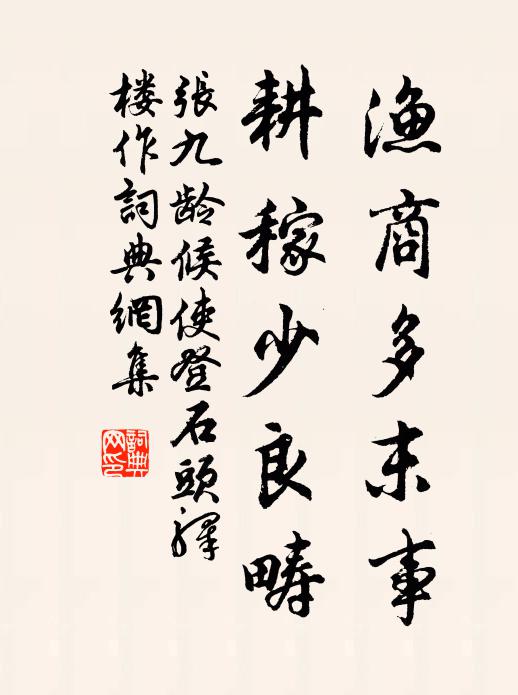 渔商多末事
耕稼少良畴
張九龄候使登石頭驛
楼作詞典網集
詞典
网印